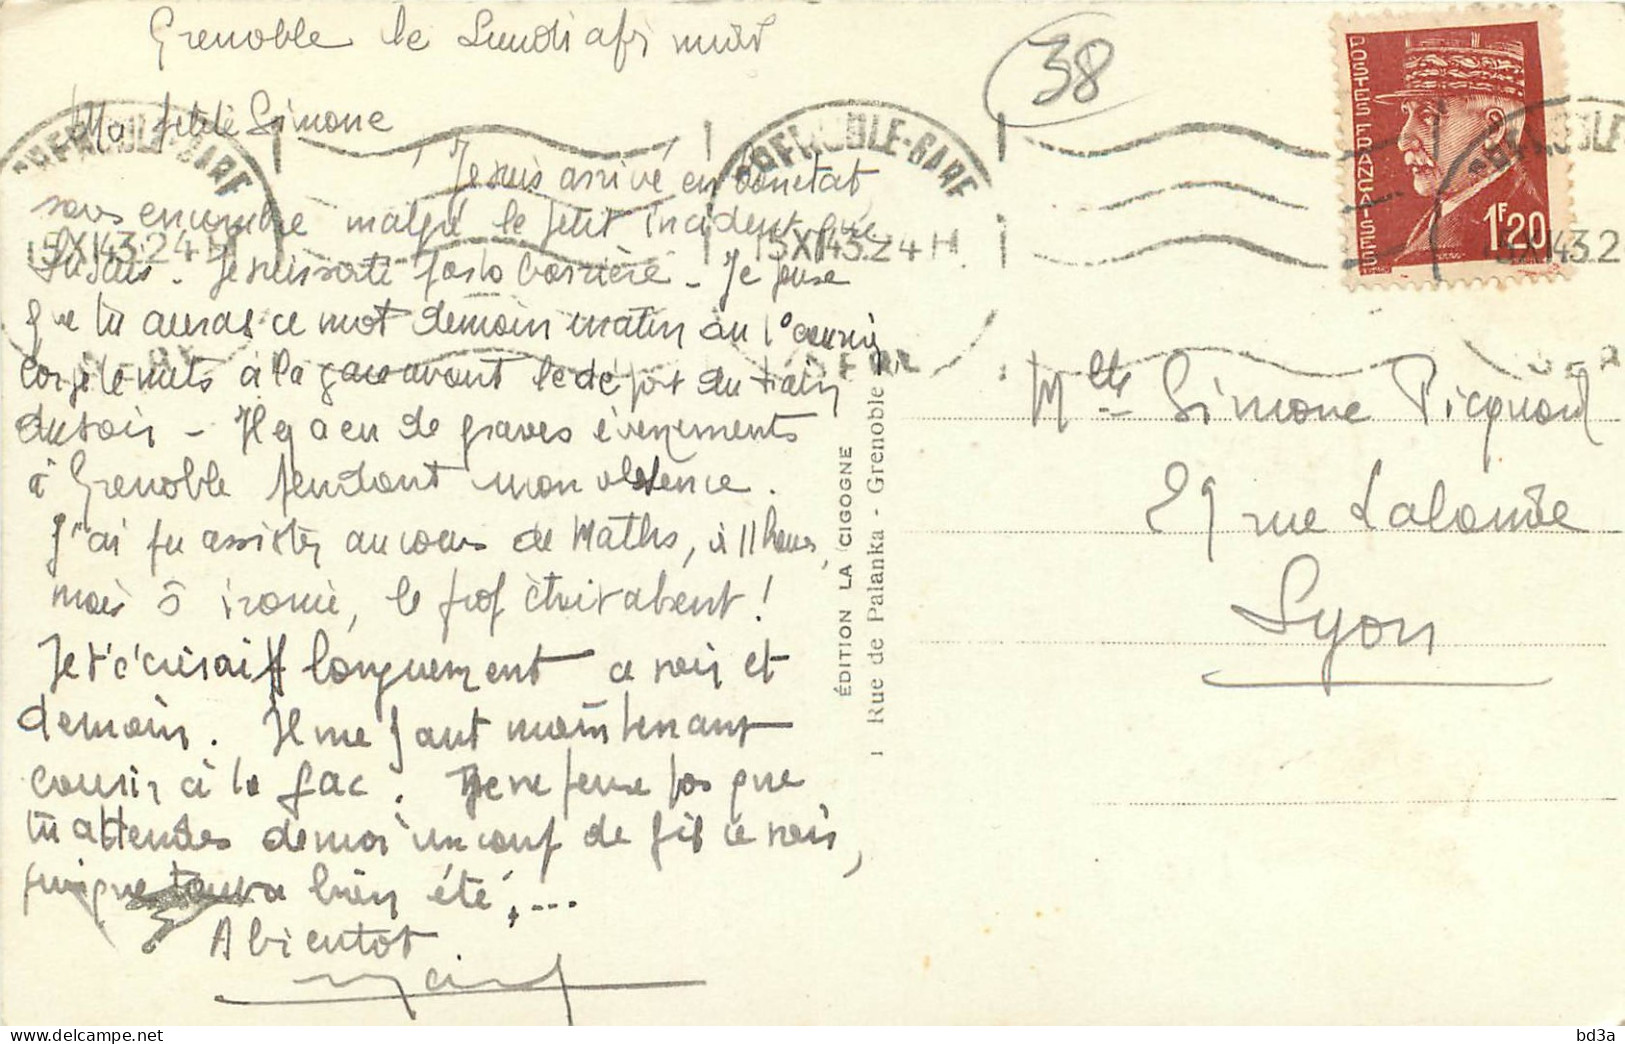 Grenoble le Lundi après midi
38
Ma petite Simone
Je suis arrivé en bon état
sans encombre malgré le petit incident que
tu sais - Je suis sorti par la barrière - Je pense
que tu auras ce mot demain matin au 1° courrier
car je le mets à la gare avant le départ du train
du soir - Il y a eu de graves évènements
à Grenoble pendant mon absence.
J'ai pu assister au cours de Maths, à 11 heures,
mais ô ironie, le prof était absent !
Je t'écrirai longuement ce soir et
demain. Il me faut maintenant
courir à la fac. Je ne pense pas que
tu attendes de moi un coup de fil ce soir,
puisque tout a bien été, ...
A bientôt
POSTES FRANÇAISES
1F20
GRENOBLE-GARE
15 XI 43.24H
ISERE
GRENOBLE-GARE
15 XI 43.24H
ISERE
Mlle Simone Picquard
29 rue Lalande
Lyon
ÉDITION LA CIGOGNE
1 Rue de Palanka - Grenoble
bd3a